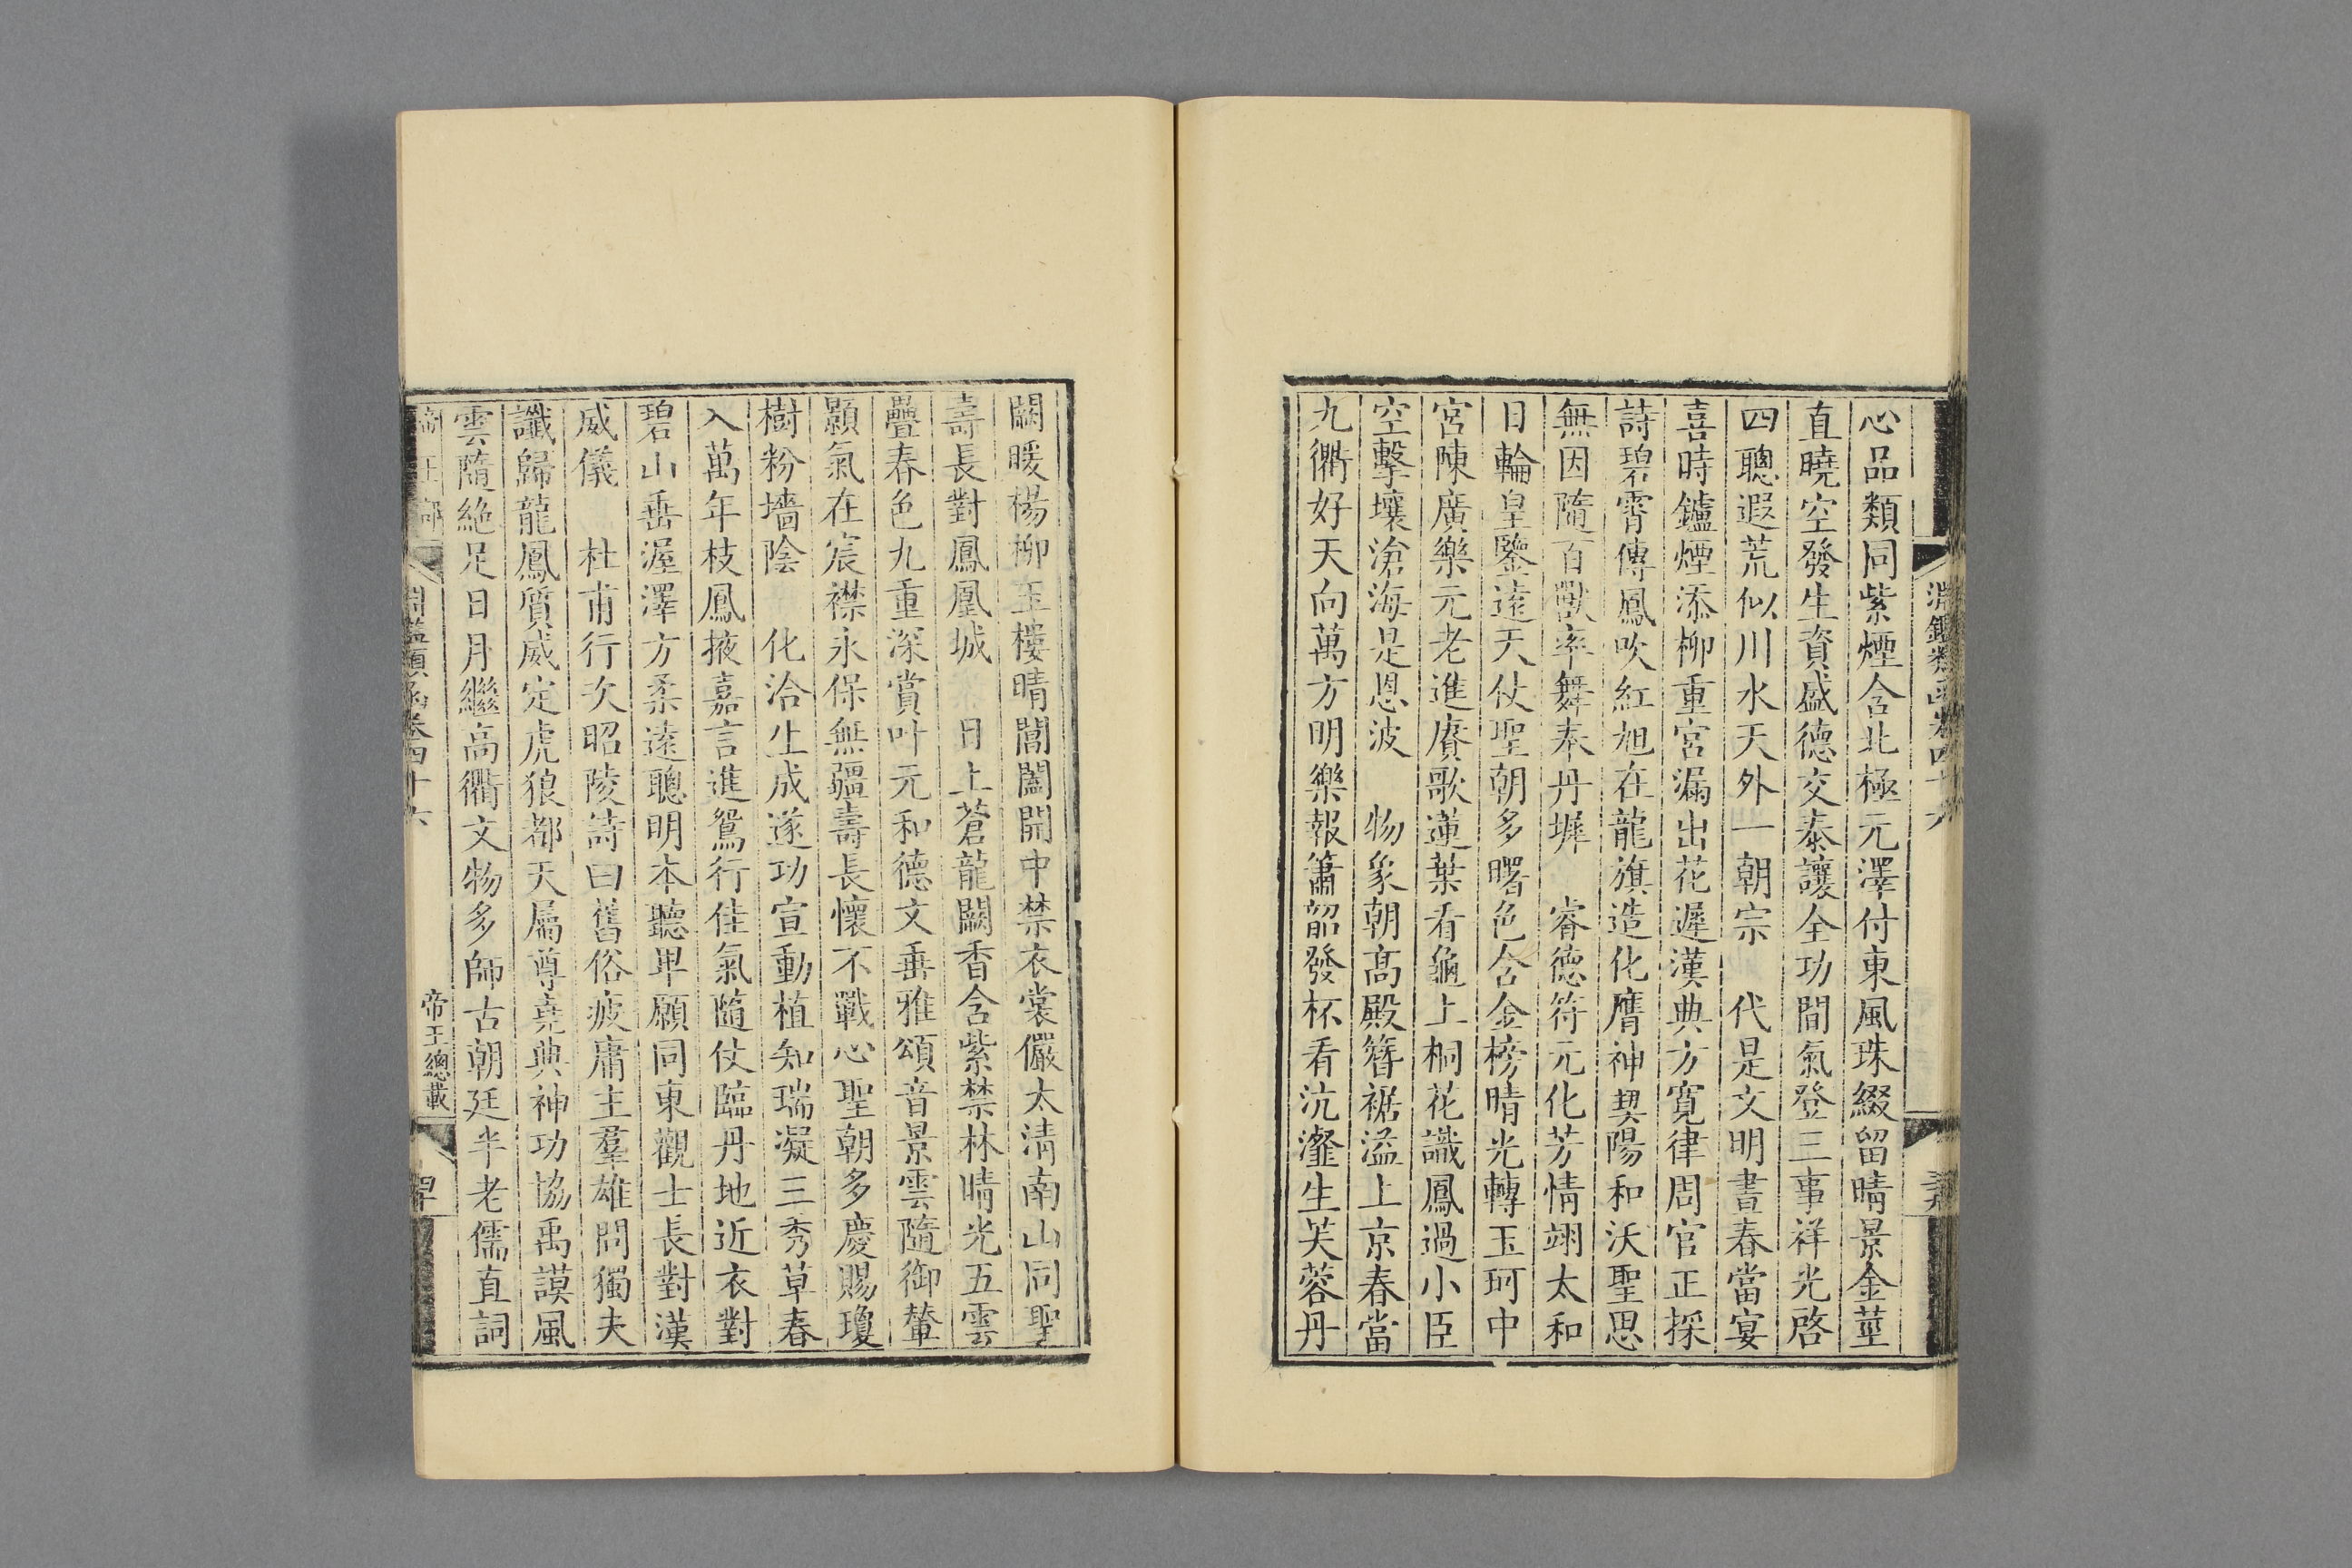 心品類同紫煙含北極元澤付東風珠綴留晴景金莖
直曉空發生資盛德交泰讓全功間氣登三事祥光啓
四聰遐荒似川水天外一朝宗　代是文明晝春當宴
喜時鑪煙添柳重宮漏出花遲漢典方寬律周官正採
詩碧霄傳鳳吹紅旭在龍旗造化膺神契陽和沃聖思
無因隨百獸率舞奉丹墀　睿德符元化芳情翊太和
日輪皇鑒遠天仗聖朝多曙色含金榜晴光轉玉珂中
宮陳廣樂元老進賡歌蓮葉看龜上桐花識鳳過小臣
空擊壤滄海是恩波　物象朝高殿簪裾溢上京春當
九衢好天向萬方明樂報簫韶發杯看沆瀣生芙蓉丹
闕暖楊柳玉樓晴閶闔開中禁衣裳儼太清南山同聖
壽長對鳳凰城　日上蒼龍闕香含紫禁林晴光五雲
疊春色九重深賞叶元和德文垂雅頌音景雲隨御輦
顥氣在宸襟永保無疆壽長懷不戰心聖朝多慶賜瓊
樹粉墻陰　化洽生成遂功宣動植知瑞凝三秀草春
入萬年枝鳳掖嘉言進鴛行佳氣隨仗臨丹地近衣對
碧山垂渥澤方柔遠聰明本聽卑願同東觀士長對漢
威儀　杜甫行次昭陵詩曰舊俗疲庸主羣雄問獨夫
讖歸龍鳳質威定虎狼都天屬尊堯典神功協禹謨風
雲隨絶足日月繼高衢文物多師古朝廷半老儒直詞
淵鑑類函卷四十六
帝王總載